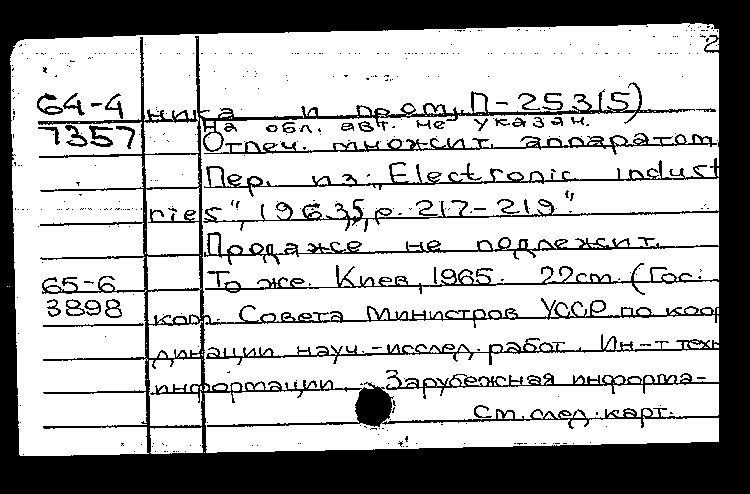 2
64-4 ника и пром, П-253(5)
7357 На обл. авт. не указан.
Отпеч. множит. аппаратом.
Пер. из: „Electronic indust
ries", 1963, p. 217-219".
Продаже не подлежит.
65-6 То же. Киев, 1965. 22cm (Гос.
3898 ком. Совета Министров УССР по коор
динации науч.-исслед. работ. Ин-т техн
информации. Зарубежная информа-
См. след. карт.